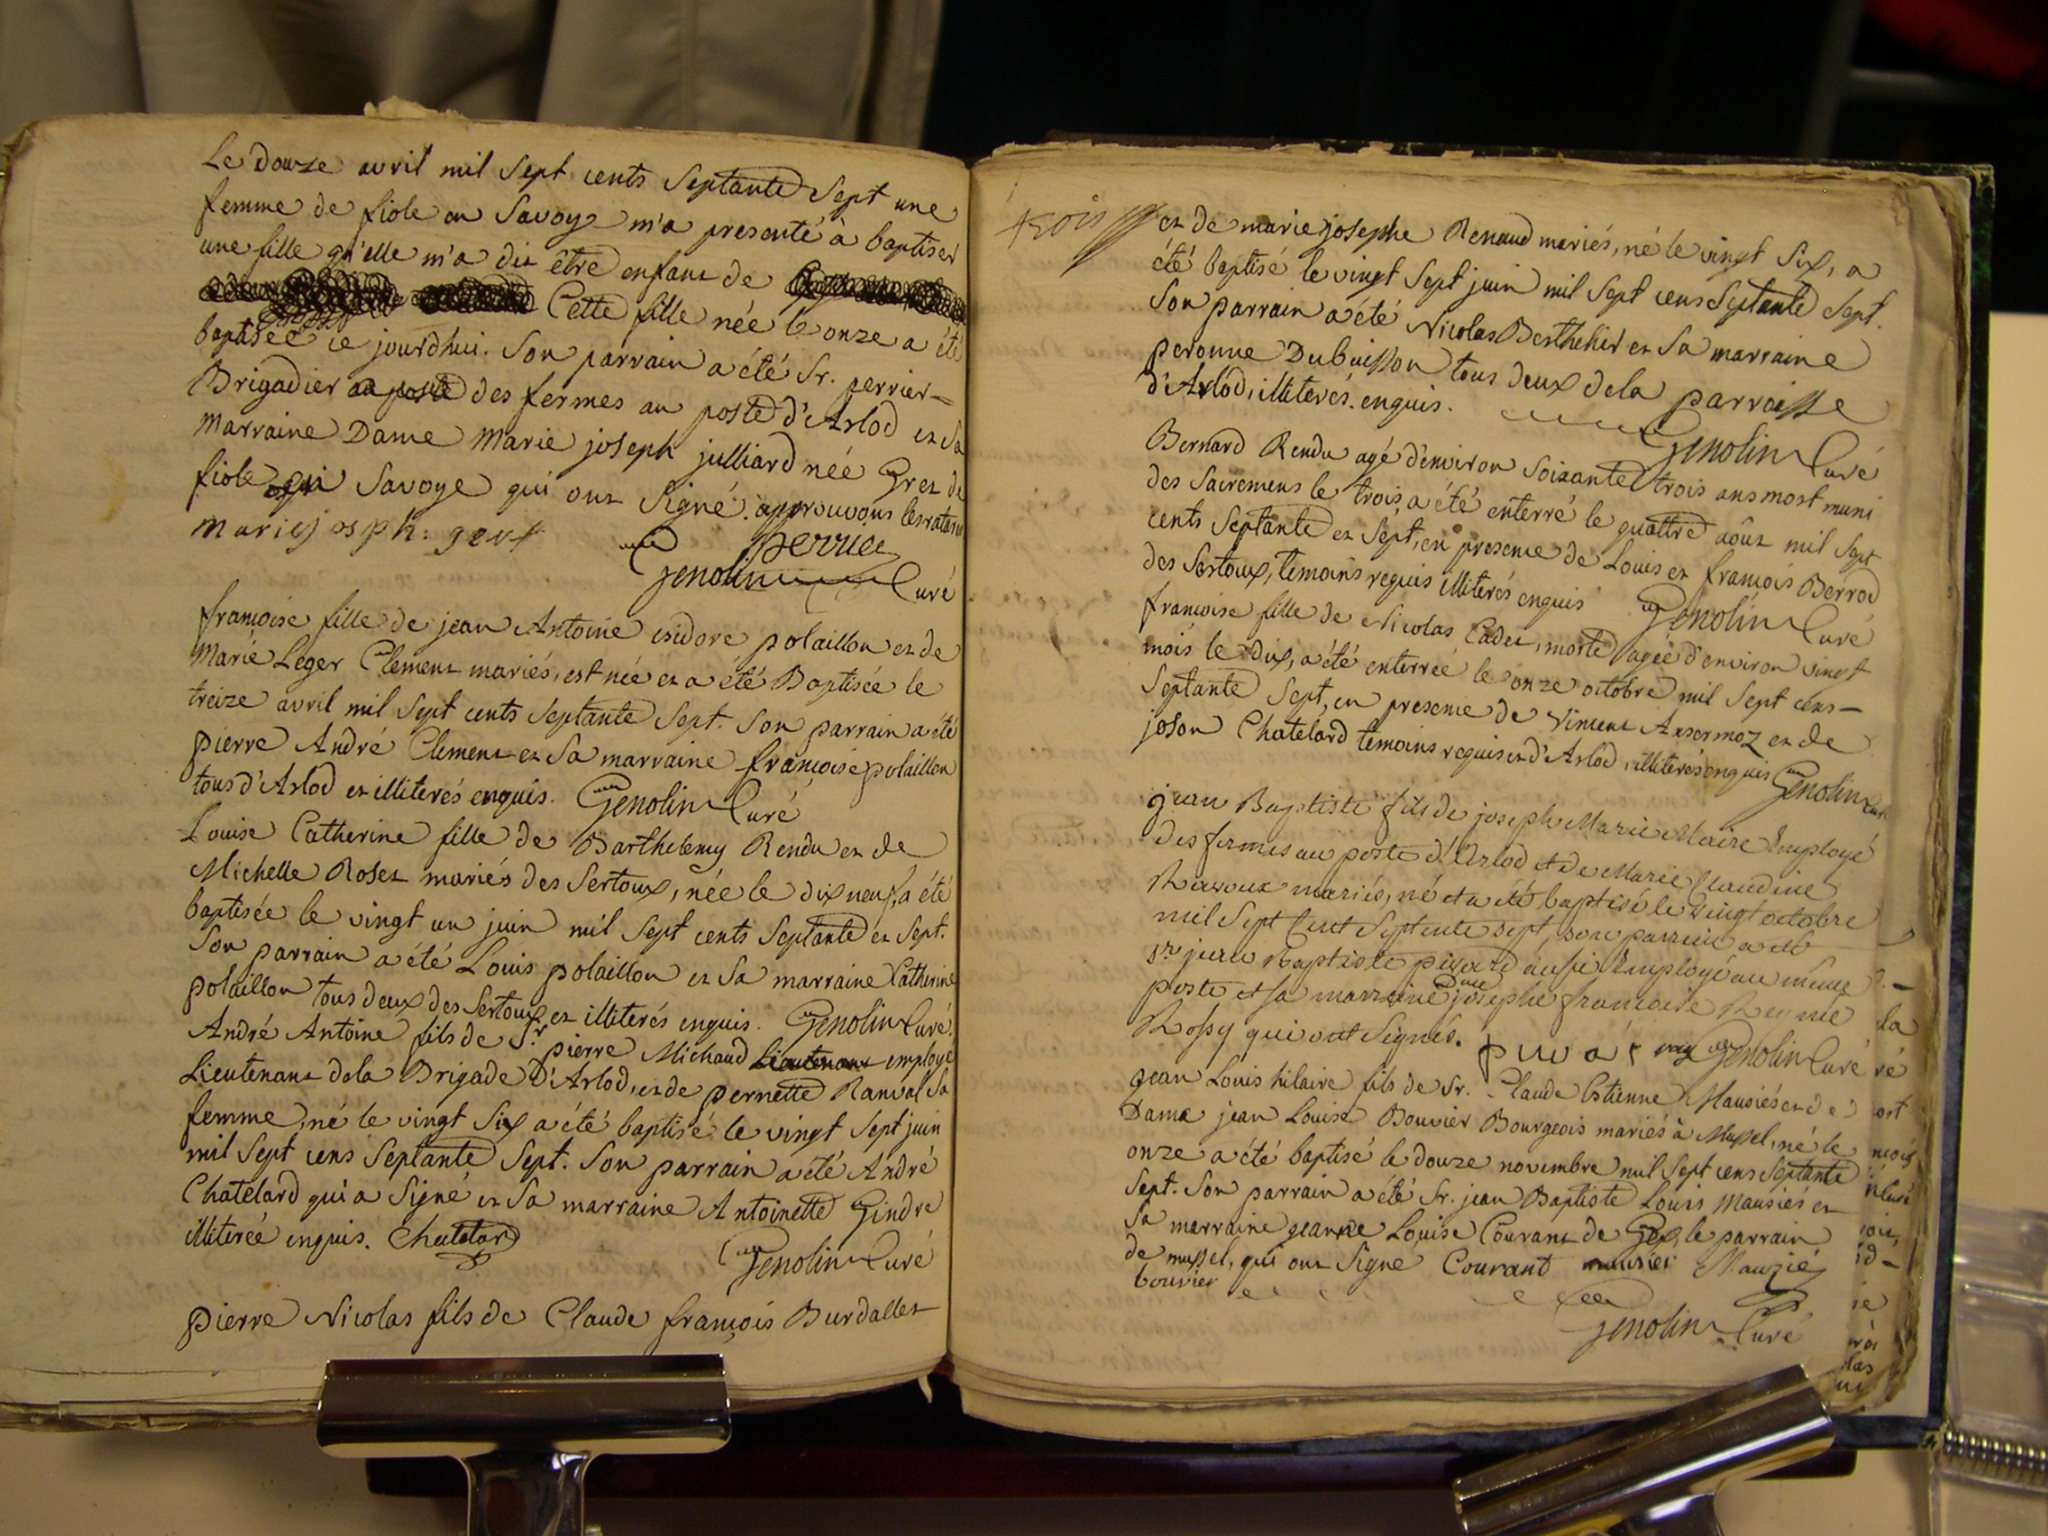 Le douze avril mil sept cents septante sept une
femme de fiole en Savoye m'a presenté à baptiser
une fille qu'elle m'a dit être enfant de
Cette fille née le onze a été
baptisée ce jourdhui. Son parrain a été Sr. perrier
Brigadier au poste des fermes au poste d'Arlod et sa
marraine Dame Marie joseph julliard née Gret de
fiole en Savoye qui ont signé. approuvons les ratures
marie josph: gret
perrier
Genolin Curé
françoise fille de jean Antoine isidore polaillon et de
Marie Leger Clement mariés, est née et a été Baptisée le
treize avril mil sept cents septante sept. Son parrain a été
pierre André Clement et sa marraine françoise polaillon
tous d'Arlod et illiterés enquis. Genolin Curé
Louise Catherine fille de Barthelemy Rendu et de
Michelle Roset mariés des Sertoux, née le dix neuf, a été
baptisée le vingt un juin mil sept cents septante et sept.
Son parrain a été Louis polaillon et sa marraine Catherine
polaillon tous deux des Sertoux et illiterés enquis. Genolin Curé
André Antoine fils de Sr. pierre Michaud Lieutenant employé
Lieutenant dela Brigade d'Arlod, et de pernette Ranval sa
femme, né le vingt six a été baptisé le vingt sept juin
mil sept cens septante sept. Son parrain a été André
Chatelard qui a signé et sa marraine Antoinette Gindre
illiterée enquis. Chatelard
Genolin Curé
pierre Nicolas fils de Claude françois Burdallet
trois
et de marie josephe Renaud mariés, né le vingt six, a
été baptisé le vingt sept juin mil sept cens septante sept.
Son parrain a été Nicolas Berthelier et sa marraine
peronne Dubuisson tous deux dela parroisse
d'Arlod, illiterés enquis.
Genolin Curé
Bernard Rendu agé d'environ soixante trois ans mort muni
des Sacremens le trois, a été enterré le quattre août mil sept
cents septante et sept, en presence de Louis et françois Berrod
des Sertoux, temoins requis illiterés enquis Genolin Curé
francoise fille de Nicolas Cadet, morte agée d'environ vingt
mois le dix, a été enterrée le onze octobre mil sept cens
septante sept, en presence de Vincent Ansermoz et de
joson Chatelard temoins requis et d'Arlod, illiterés enquis Genolin Curé
jean Baptiste fils de joseph Marie Maire Employé
des fermes au poste d'Arlod et de Marie Claudine
Ravoux mariés, né et a été baptisé le vingt octobre
mil sept Cent septente sept, son parrein a été
Sr jean Baptiste pivard aussi Employé au même
poste et sa marraine Dme josephe francoise Reyne
Rossy qui ont signés. pivar Genolin Curé
jean Louis hilaire fils de Sr. Claude Estienne Mausiés et de
Dame jean Louise Bouvier Bourgeois mariés à Mussel, né le
onze a été baptisé le douze novembre mil sept cens septante
sept. Son parrain a été Sr. jean Baptiste Louis Mausiés et
sa marraine jeanne Louise Courant de Gex, le parrain
de mussel, qui ont signé Courant mausier Mauzié
bouvier
Genolin Curé